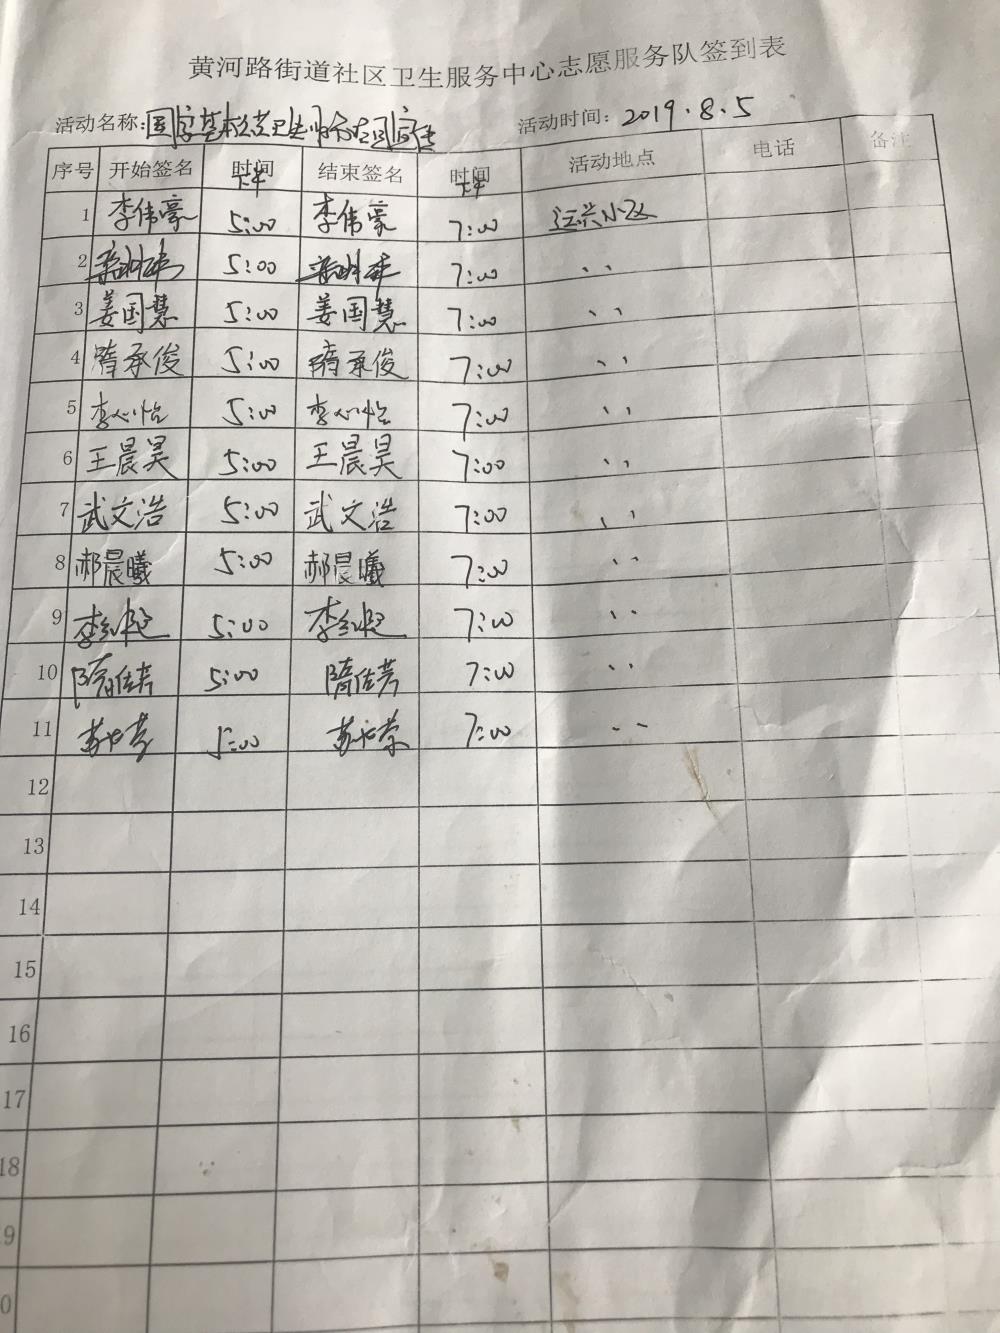 黄河路街道社区卫生服务中心志愿服务队签到表
活动名称:国家基本公共卫生服务项目宣传 活动时间: 2019.8.5
序号 开始签名 时间 结束签名 时间 活动地点 电话 备注
下午 下午
1 李伟豪 5:00 李伟豪 7:00 运兴小区
2 5:00 7:00 、、
3 姜国慧 5:00 姜国慧 7:00 、、
4 隋承俊 5:00 隋承俊 7:00 、、
5 李心怡 5:00 李心怡 7:00 、、
6 王晨昊 5:00 王晨昊 7:00 、、
7 武文浩 5:00 武文浩 7:00 、、
8 郝晨曦 5:00 郝晨曦 7:00 、、
9 5:00 7:00 、、
10 隋佳芳 5:00 隋佳芳 7:00 、、
11 5:00 7:00 、、
12
13
14
15
16
17
18
9
0